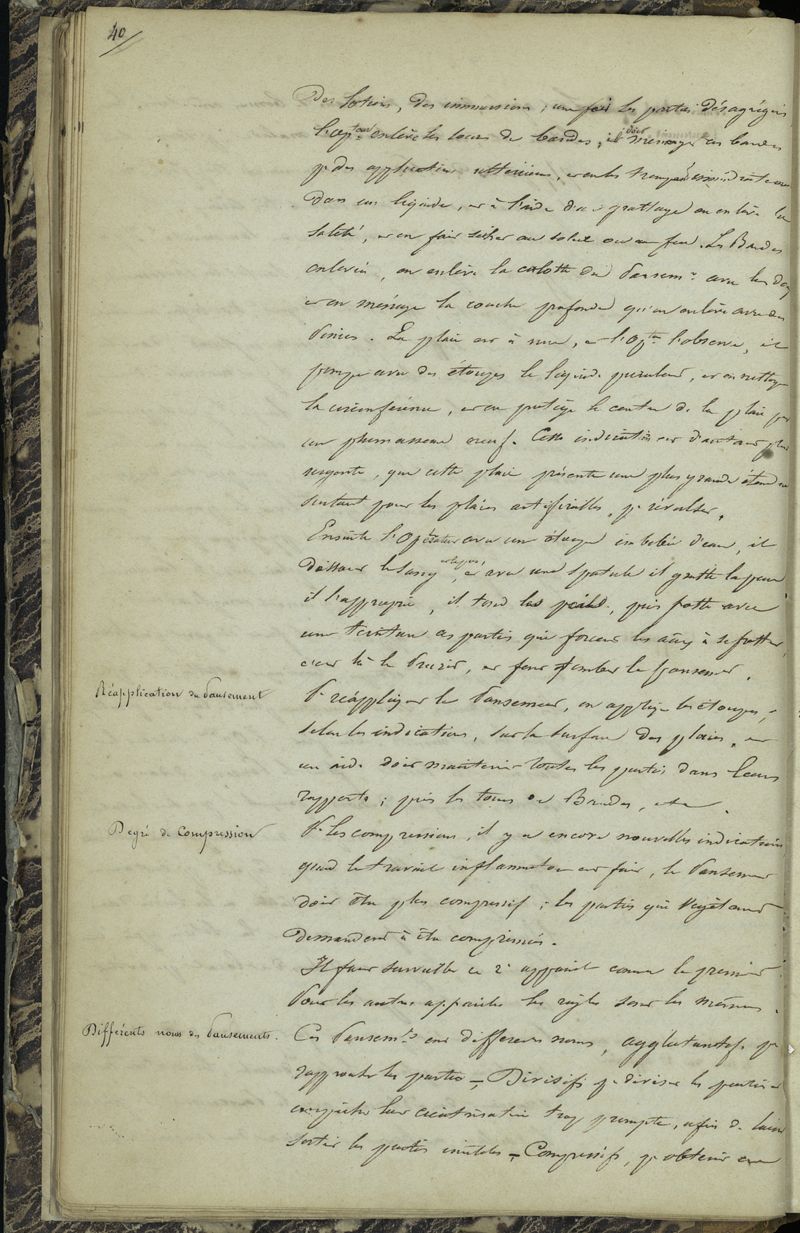 40
Des lotions, des immersions ; une fois les parties désagrégées
l'opteur enlève les tours de bandes, il doit ménager ces bandes
pr des applications ultérieures, et on les trempe immédiatement
dans un liquide, et à l'aide d'un grattage on enlève la
saleté, et on fait sécher au soleil ou au feu. Les Bandes
enlevées, on enlève la calotte du Pansemt avec les doigts
et on ménage la couche profonde qu'on enlève avec des
Pinces. La plaie est à nue, et l'Opteur l'observe, il
éponge avec des étoupes le liquide purulent, et on nettoye
la circonférence, et on protège le centre de la plaie par
un plumasseau neuf. Cette indication est d'autant plus
urgente, que cette plaie présente une plus grande étendue
surtout pour les plaies artificielles, pr révulser.
Ensuite l'Opérateur avec une étoupe imbibée d'eau, il
dissout le sang, et avec une spatule il gratte la peau
il l'approprie, il tond les poils, puis frotte avec
une teinture ces parties qui forcent les à se frotter,
c'est là le Prurit, et font tomber le pansement.
Réapplication du Pansement
Pr réappliquer le Pansement, on applique les étoupes,
selon les indications, sur la surface des plaies, et
un aide doit maintenir toutes les parties dans leurs
rapports ; puis les tours de Bandes, etc.
Degré de Compression
Pr les compressions, il y a encore nouvelles indications
quand le travail inflammatoire est fait, le Pansement
doit être plus compressif ; les parties qui végètent
demandent à être compressées.
Il faut surveiller ce 2e appareil comme le premier
Pour les autres appareils les règles sont les mêmes.
Différents noms des Pansements.
Ces Pansemts ont différents noms, agglutinatifs pr
rapprocher les parties — Divisifs pr diviser les parties et
empêcher leur cicatrisation trop prompte, afin de laisser
sortir les parties inutiles — Compressifs, pr obtenir une